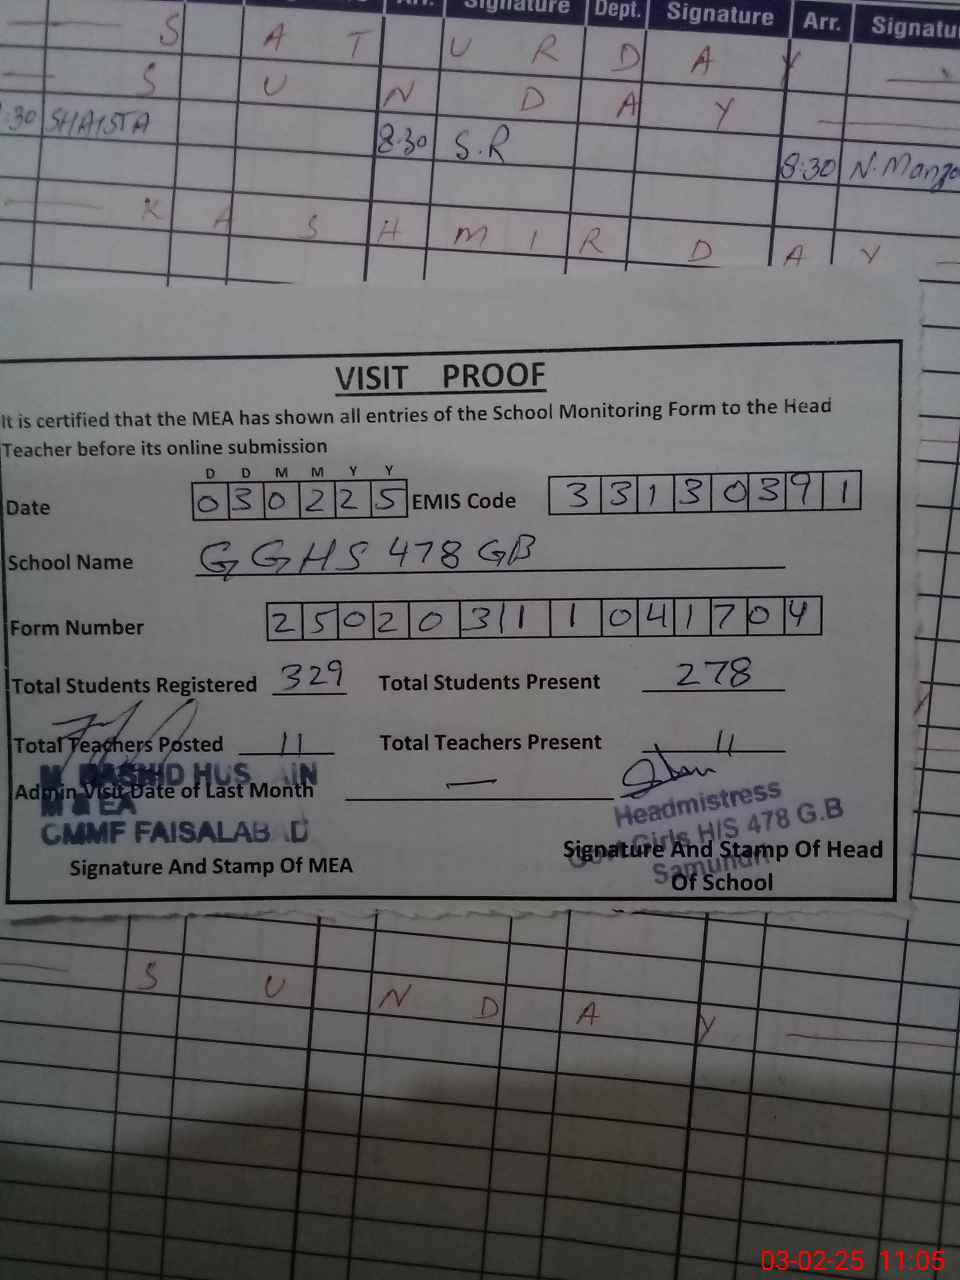 Signature Dept. Signature Arr. Signatu
S A T U R D A Y
S U N D A Y
:30 SHAISTA 8:30 S.R 8:30 N.Manzo
K A S H M I R D A Y
VISIT PROOF
It is certified that the MEA has shown all entries of the School Monitoring Form to the Head
Teacher before its online submission
D D M M Y Y
Date 0 3 0 2 2 5 EMIS Code 3 3 1 3 0 3 9 1
School Name GGHS 478 GB
Form Number 2 5 0 2 0 3 1 1 0 4 1 7 0 4
Total Students Registered 329 Total Students Present 278
Total Teachers Posted 11 Total Teachers Present 11
Admin Visit Date of Last Month —
M RASHID HUS AIN
M & EA
CMMF FAISALABAD
Headmistress
Govt Girls H/S 478 G.B
Samundri
Signature And Stamp Of MEA
Signature And Stamp Of Head
Of School
S U N D A Y
03-02-25 11:05